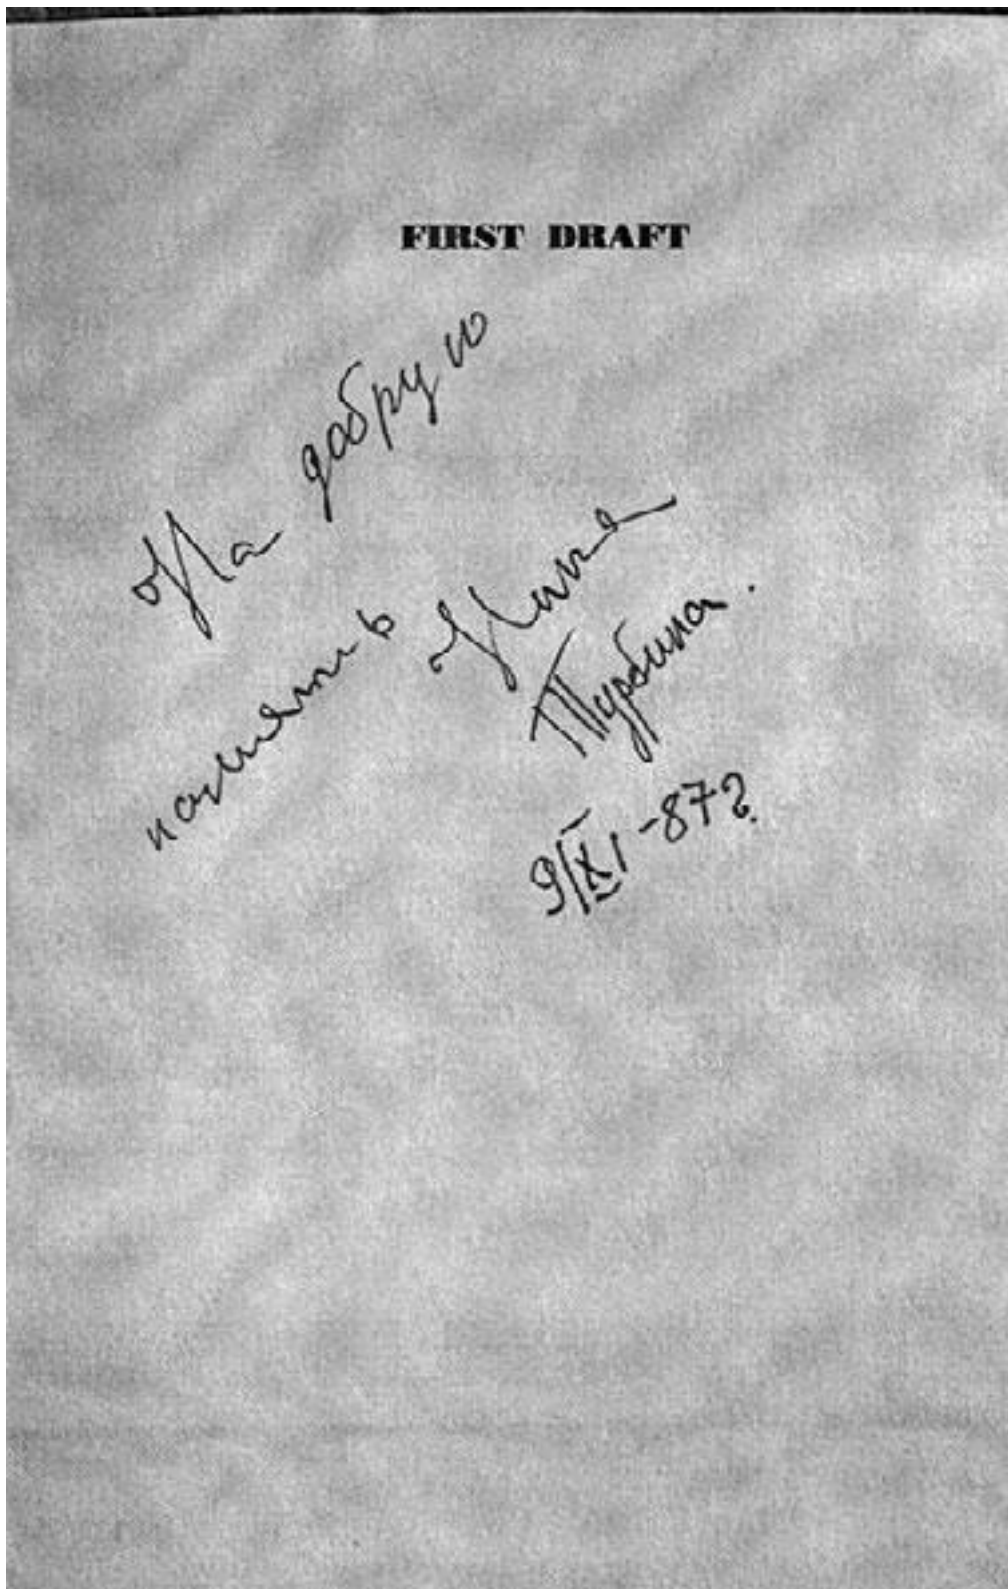 FIRST DRAFT
На добрую
память Нина
Турбина.
9/XI-87г.